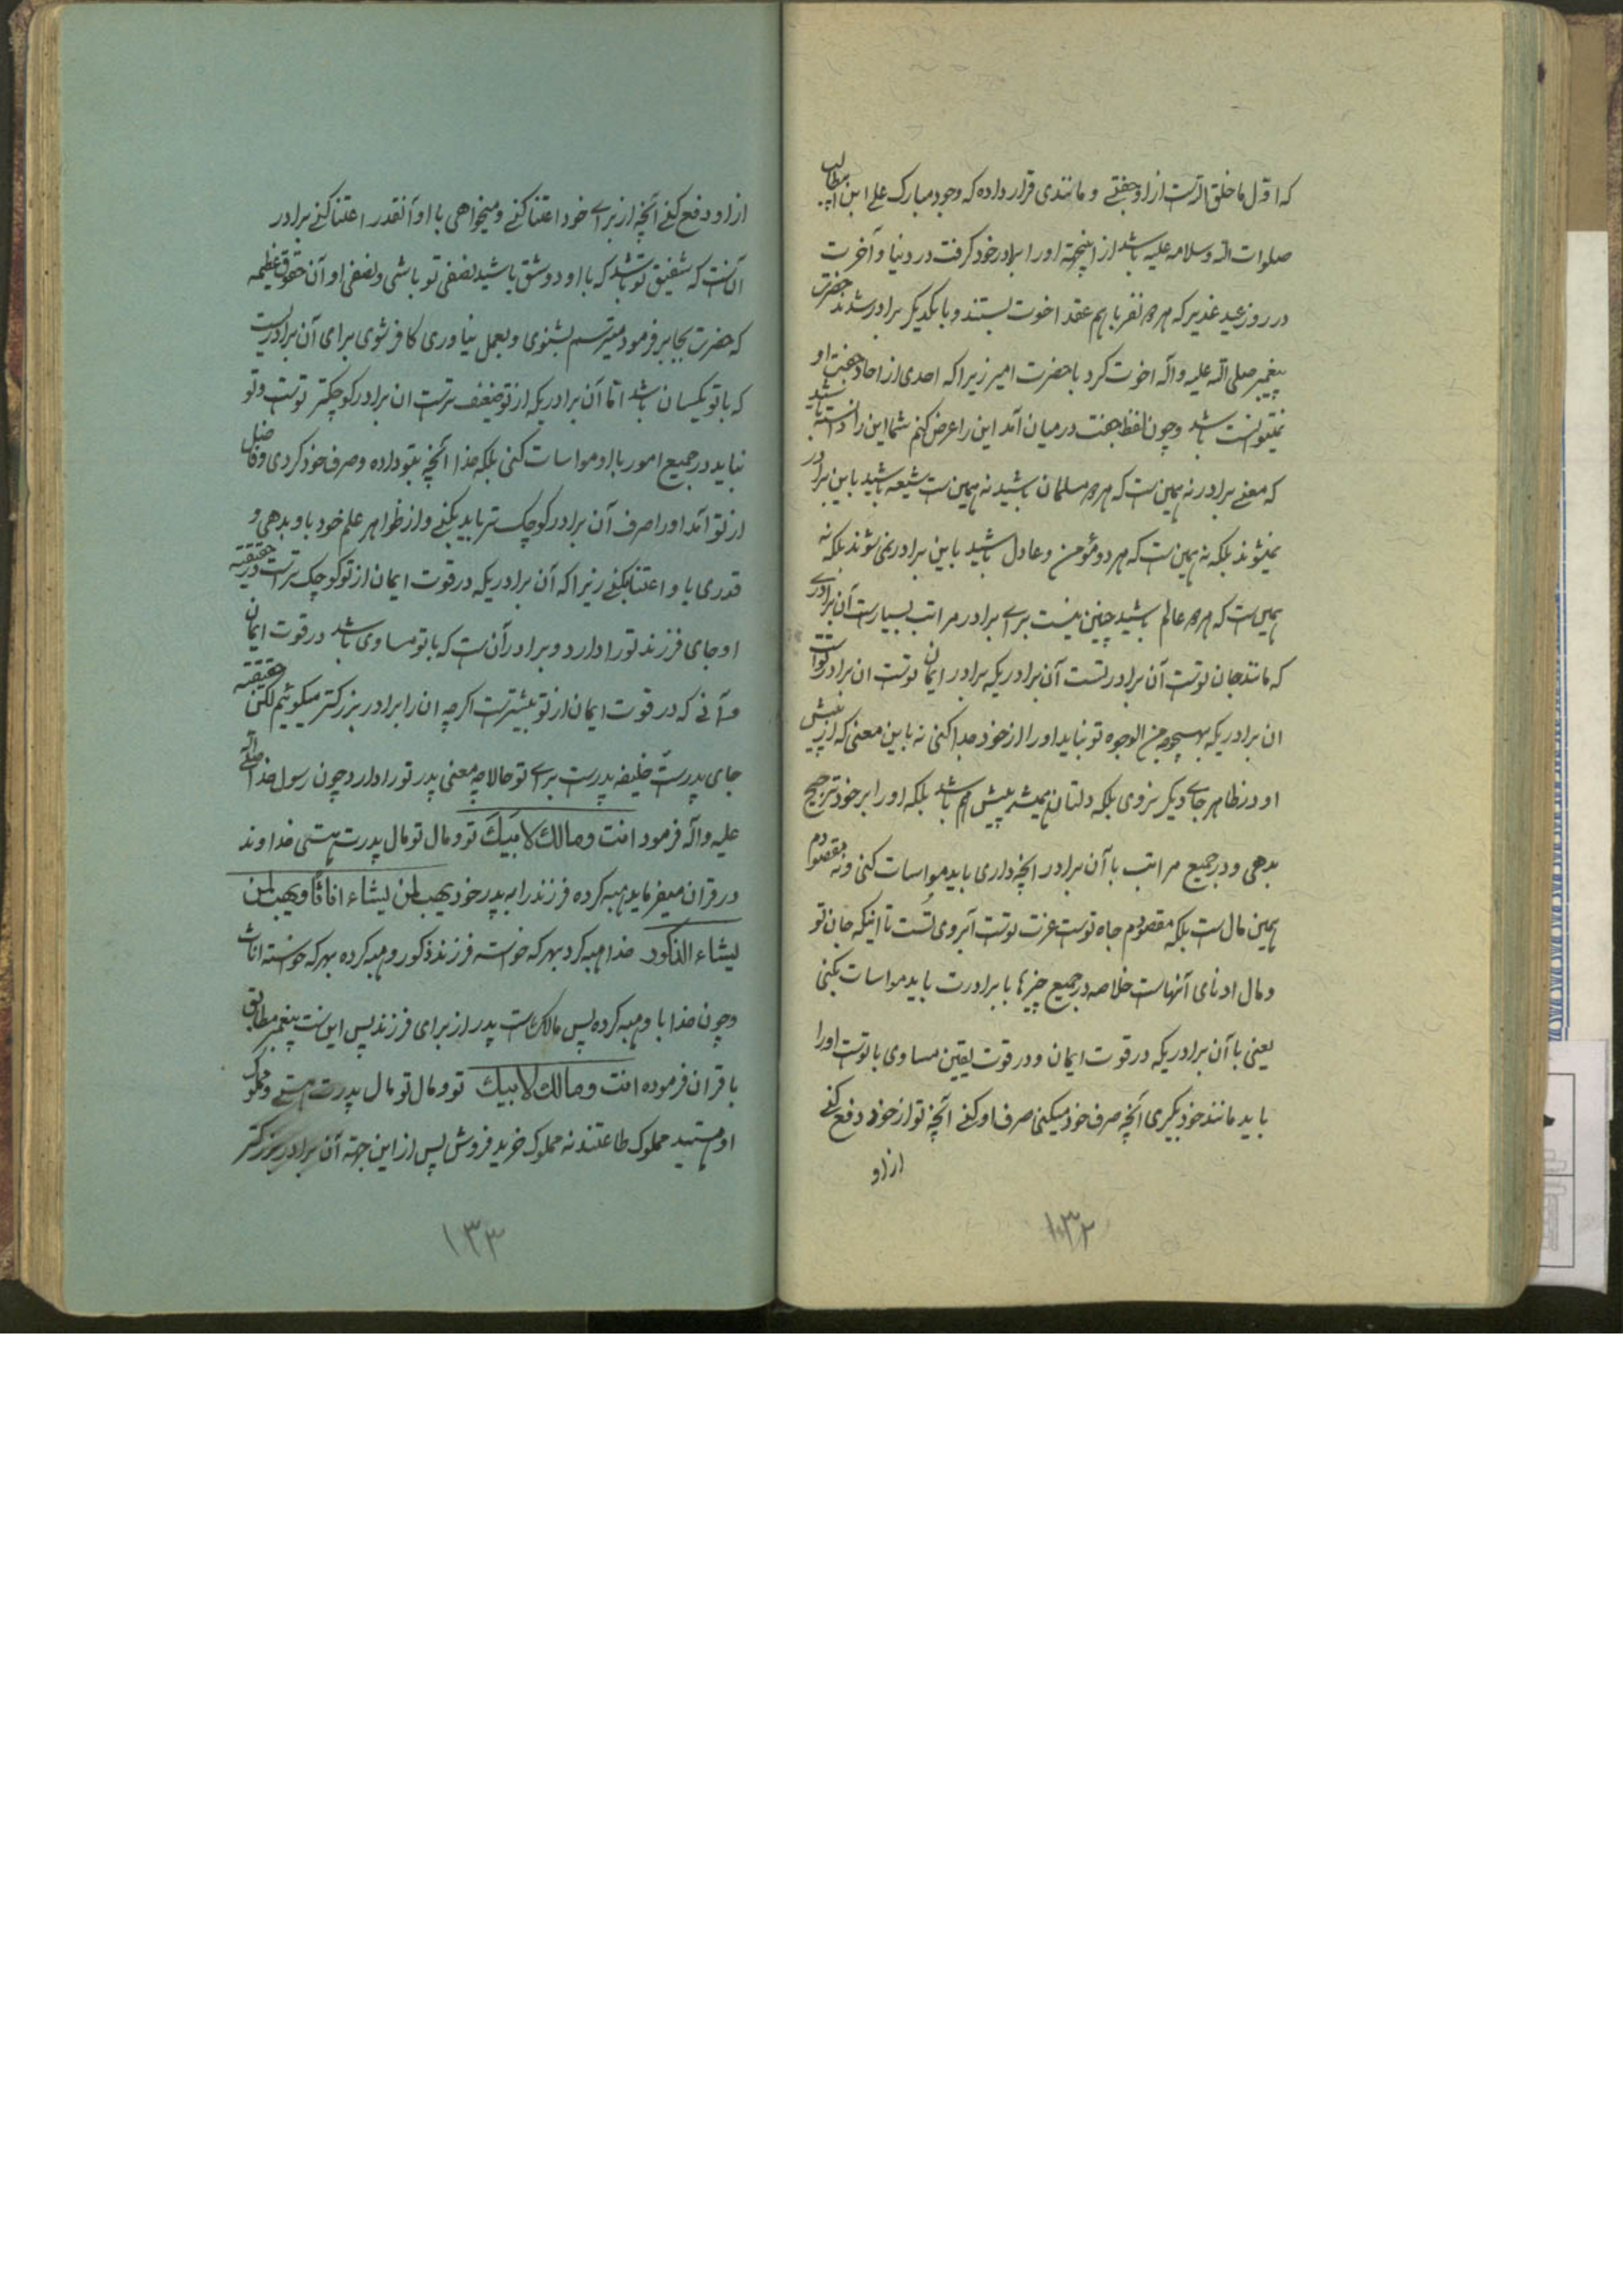 که اول ما خلق الله است از او جفتے و مانندی قرار داده که وجود مبارک علی ابن ابیطالب
صلوات الله و سلامه علیه باشد از اینجهة او را برادر خود گرفت در دنیا و آخرت
در روز عید غدیر که هر دو نفر با هم عقد اخوت بستند و با یکدیگر برادر شدند حضرت
پیغمبر صلی الله علیه و آله اخوت کرد با حضرت امیر زیرا که احدی از احاد جفت او
نمیتوانست باشد و چون لفظ جفت در میان آمد این را عرض کنم شما این را دانسته باشید
که معنے برادر نه همین است که هر دو مسلمان باشید نه همین است شیعه باشید باین برادر
نمیشوند بلکه نه همین است که هر دو مؤمن و عادل باشید باین برادر نمی شوند بلکه نه
همین است که هر دو عالم باشید چنین نیست براے برادر مراتب بسیار است آن برادرے
که مانند جان توست آن برادر تست آن برادریکه برادر ایمان توست ان برادر تو است
ان برادریکه بهیچوجه من الوجوه تو نباید او را از خود جدا کنی نه باین معنی که از پیش
او در ظاهر جاے دیگر نروی بلکه دلتان همیشه پیش هم باشد بلکه او را بر خود ترجیح
بدهی و در جمیع مراتب با آن برادر انچه داری باید مواسات کنی و نه مقصودم
همین مال است بلکه مقصودم جاه توست عزت توست آبروی تست تا اینکه جان تو
و مال ادنای آنهاست خلاصه در جمیع چیزها با برادرت باید مواسات بکنی
یعنی با آن برادریکه در قوت ایمان و در قوت یقین مساوی با توست او را
باید مانند خود بگیری آنچه صرف خود میکنی صرف او کنے آنچه تو از خود دفع کنے
از او
۱۳۲
از او دفع کنے آنچه از براے خود اعتنا کنے و میخواهی با او آنقدر اعتنا کنے برادر
آنست که شفیق تو باشد که با او دوشق باشید نصفی تو باشی و نصفی او آن حقوق عظیمه
که حضرت بجابر فرمود میترسم بشنوی و بعمل نیاوری کافر شوی برای آن برادریست
که با تو یکسان باشد اما آن برادریکه از تو ضعیف تر است ان برادر کوچکتر توست و تو
نباید در جمیع امور با او مواسات کنی بلکه خدا آنچه بتو داده و صرف خود کردی و فاضل
از تو آمد او را صرف آن برادر کوچک تر باید بکنے و از ظواهر علم خود باو بدهی و
قدری باو اعتنا بکنے زیرا که آن برادریکه در قوت ایمان از تو کوچک تر است در حقیقة
او جای فرزند تو را دارد و برادر آن است که با تو مساوی باشد در قوت ایمان
و آنے که در قوت ایمان از تو بیشتر است اگرچه ان را برادر بزرگتر میگوئیم لکن حقیقة
جای پدر است خلیفه پدر است براے تو حالا چه معنی پدر تو را دارد چون رسول خدا صلے الله
علیه و آله فرمود انت و مالك لابیك تو و مال تو مال پدرت هستی خداوند
در قران میفرماید هبه کرده فرزند را به پدر خود یهب لمن یشاء اناثا و یهب لمن
یشاء الذکور خدا هبه کرد بهر که خواسته فرزند ذکور و هبه کرده بهر که خواسته اناث
و چون خدا باو هبه کرده پس مالک است پدر از برای فرزند پس اینست پیغمبر مطابق
با قران فرموده انت و مالك لابیك تو و مال تو مال پدرت هستے و مملوک
او هستید مملوک طاعتند نه مملوک خرید فروش پس از این جهة آن برادر بزرگتر
۱۳۳